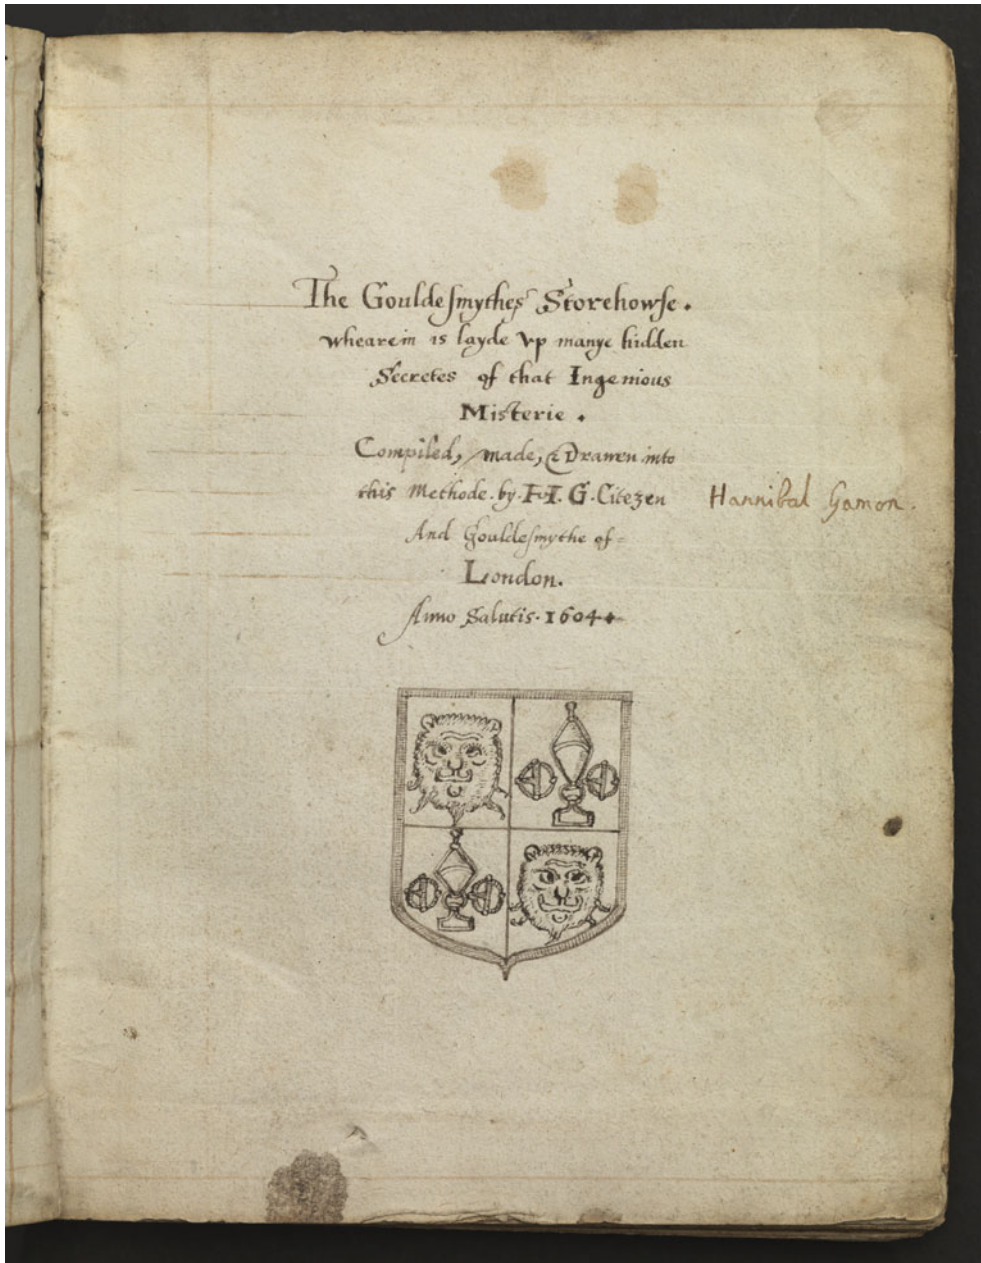 The Gouldesmythes Storehowse.
whearein is layde vp manye hidden
Secretes of that Ingenious
Misterie.
Compiled, made, & Drawen into
this Methode. by. H. G. Citezen
Hannibal Gamon.
And Gouldesmythe of=
London.
Anno Salutis. 1604